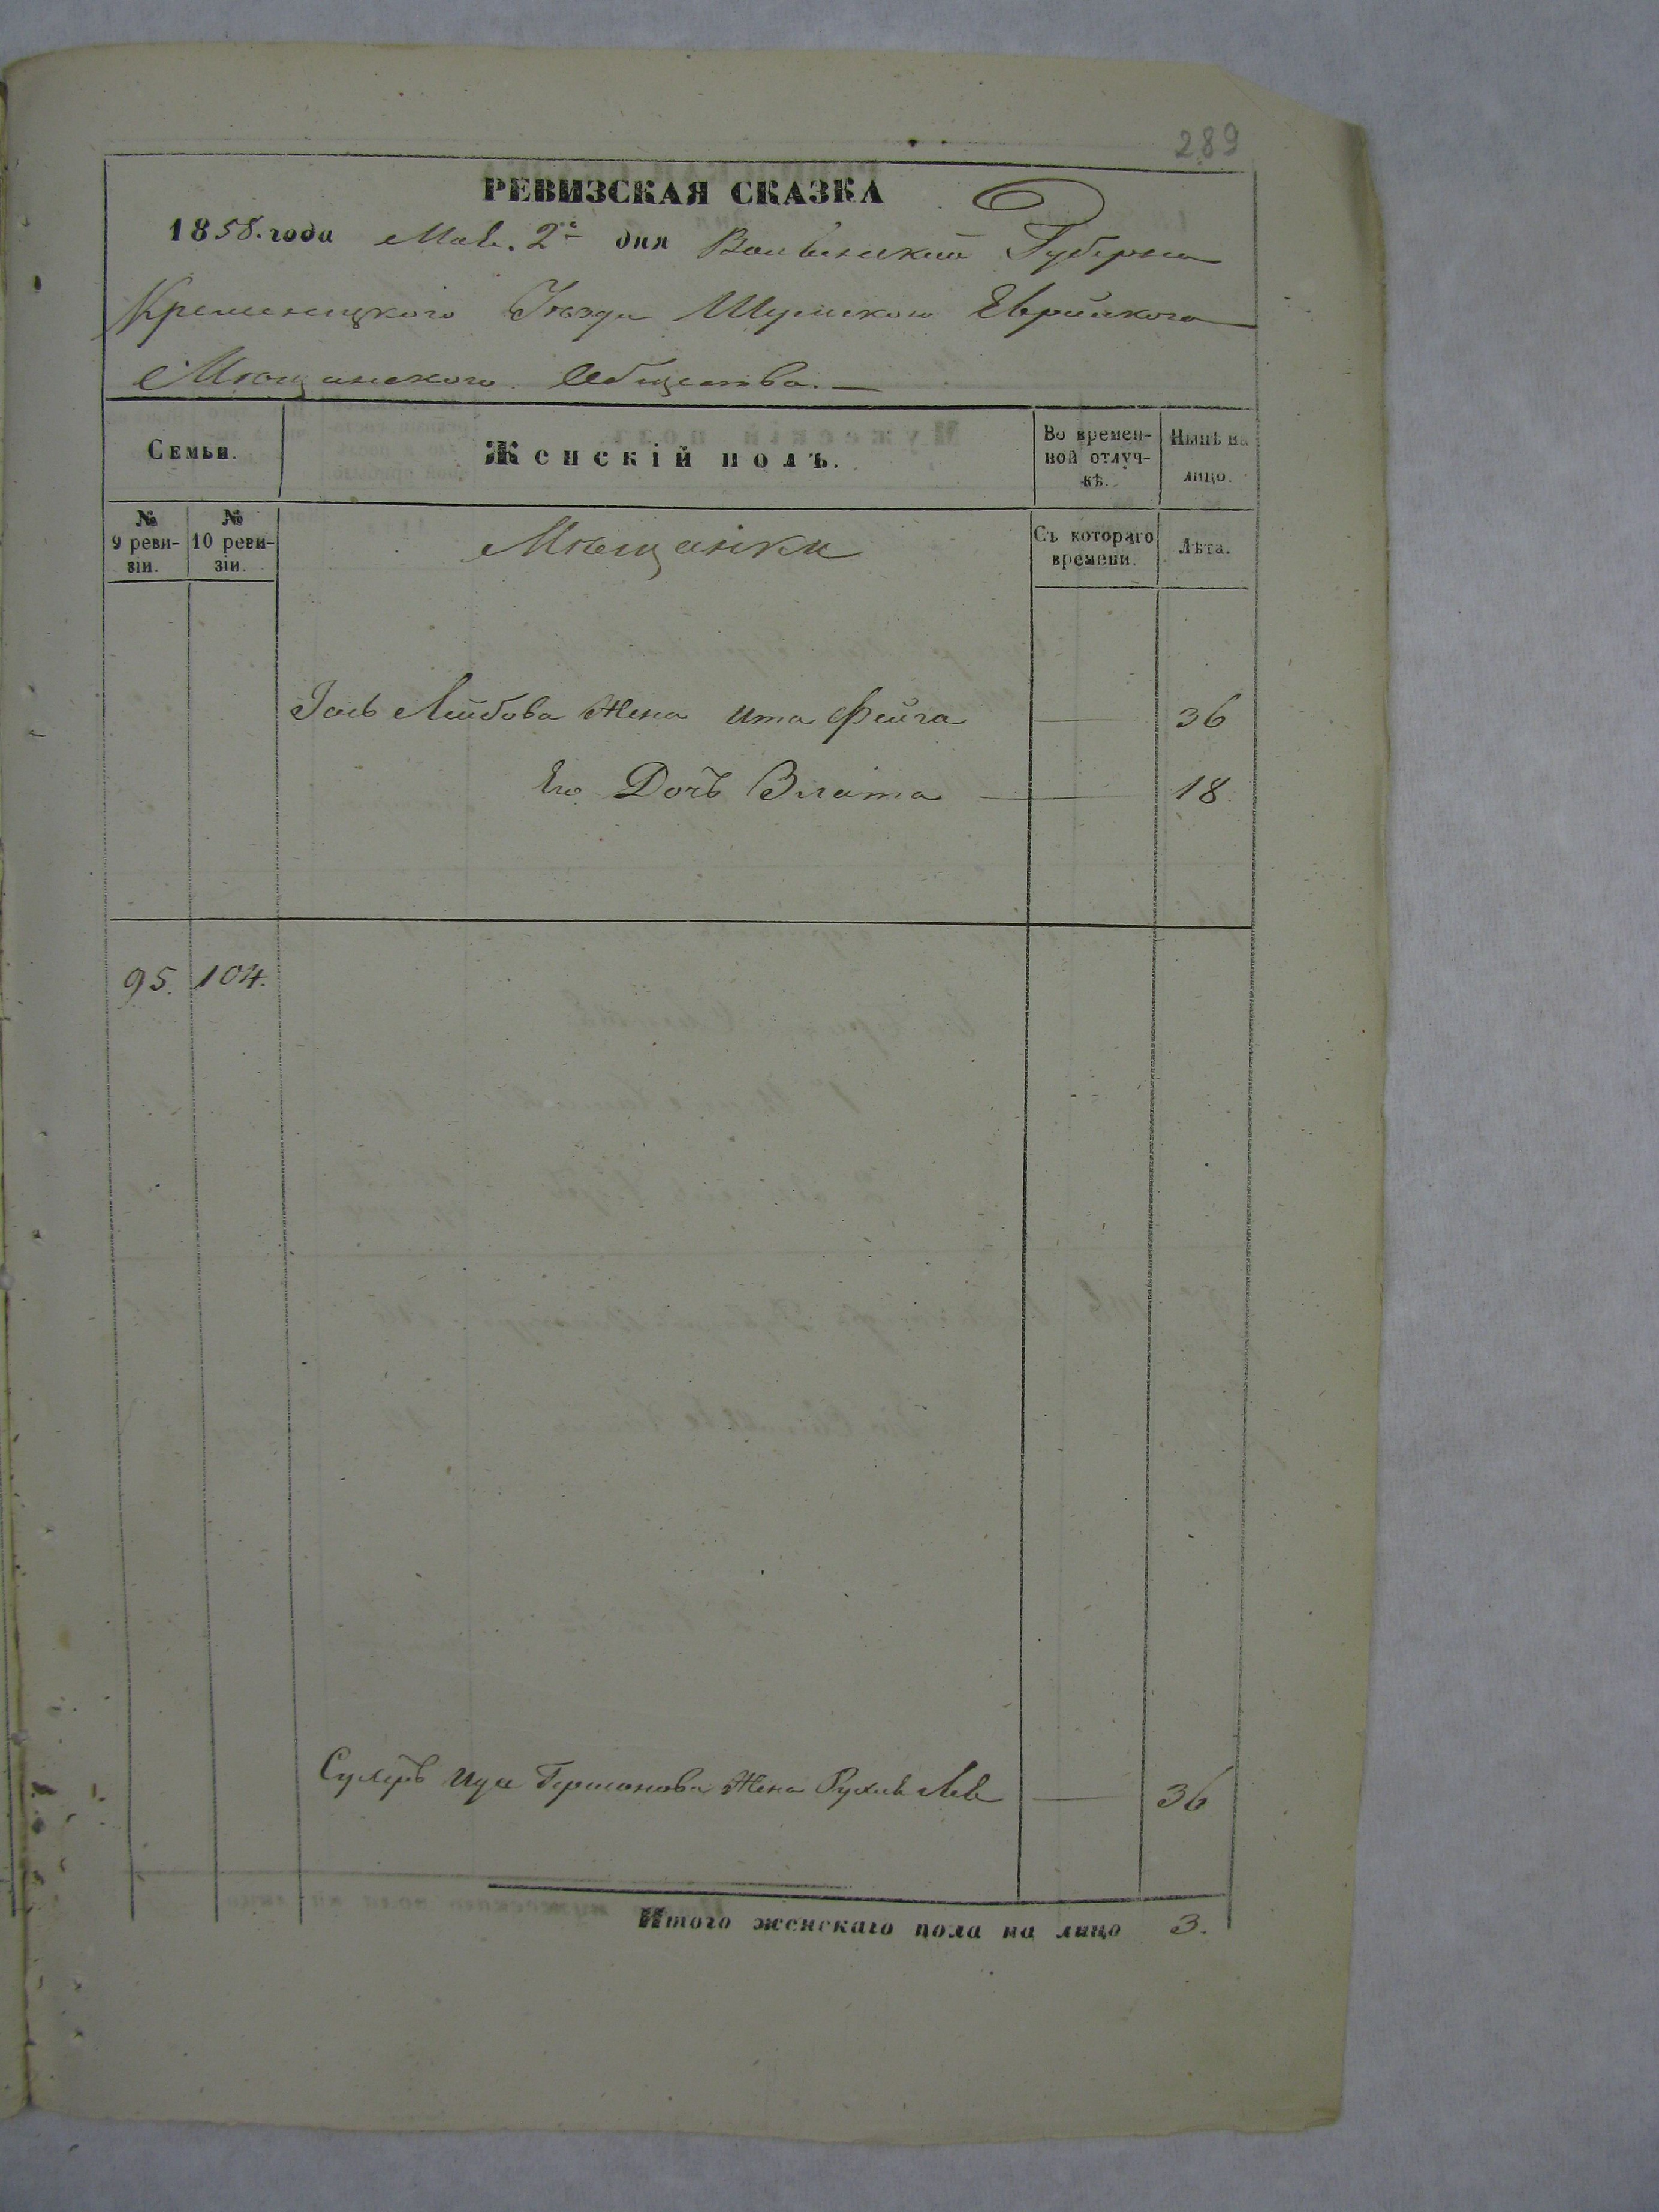 289
РЕВИЗСКАЯ СКАЗКА
1858. года Мая. 2го дня Волынской Губернии
Кременецкого Уезда Шумского Еврейского
Мещанского Общества.—
Семьи.
Женскій полъ.
Во времен-
ной отлуч-
кѣ.
Нынѣ на
лицо.
№
9 реви-
зіи.
№
10 реви-
зіи.
Мещанки
Съ котораго
времени.
Лѣта.
Лейбова Жена Ита Фейга — 36
Его Дочь Злата — 18
95. 104.
Гершонова Жена Рухля Лея — 36
Итого женскаго пола на лицо 3.